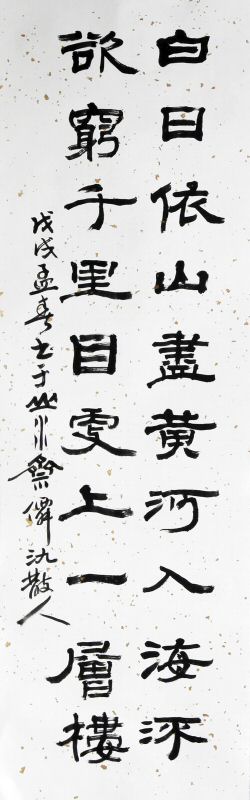 白日依山盡黃河入海流
欲窮千里目更上一層樓
戊戌孟春书于山水齋散人